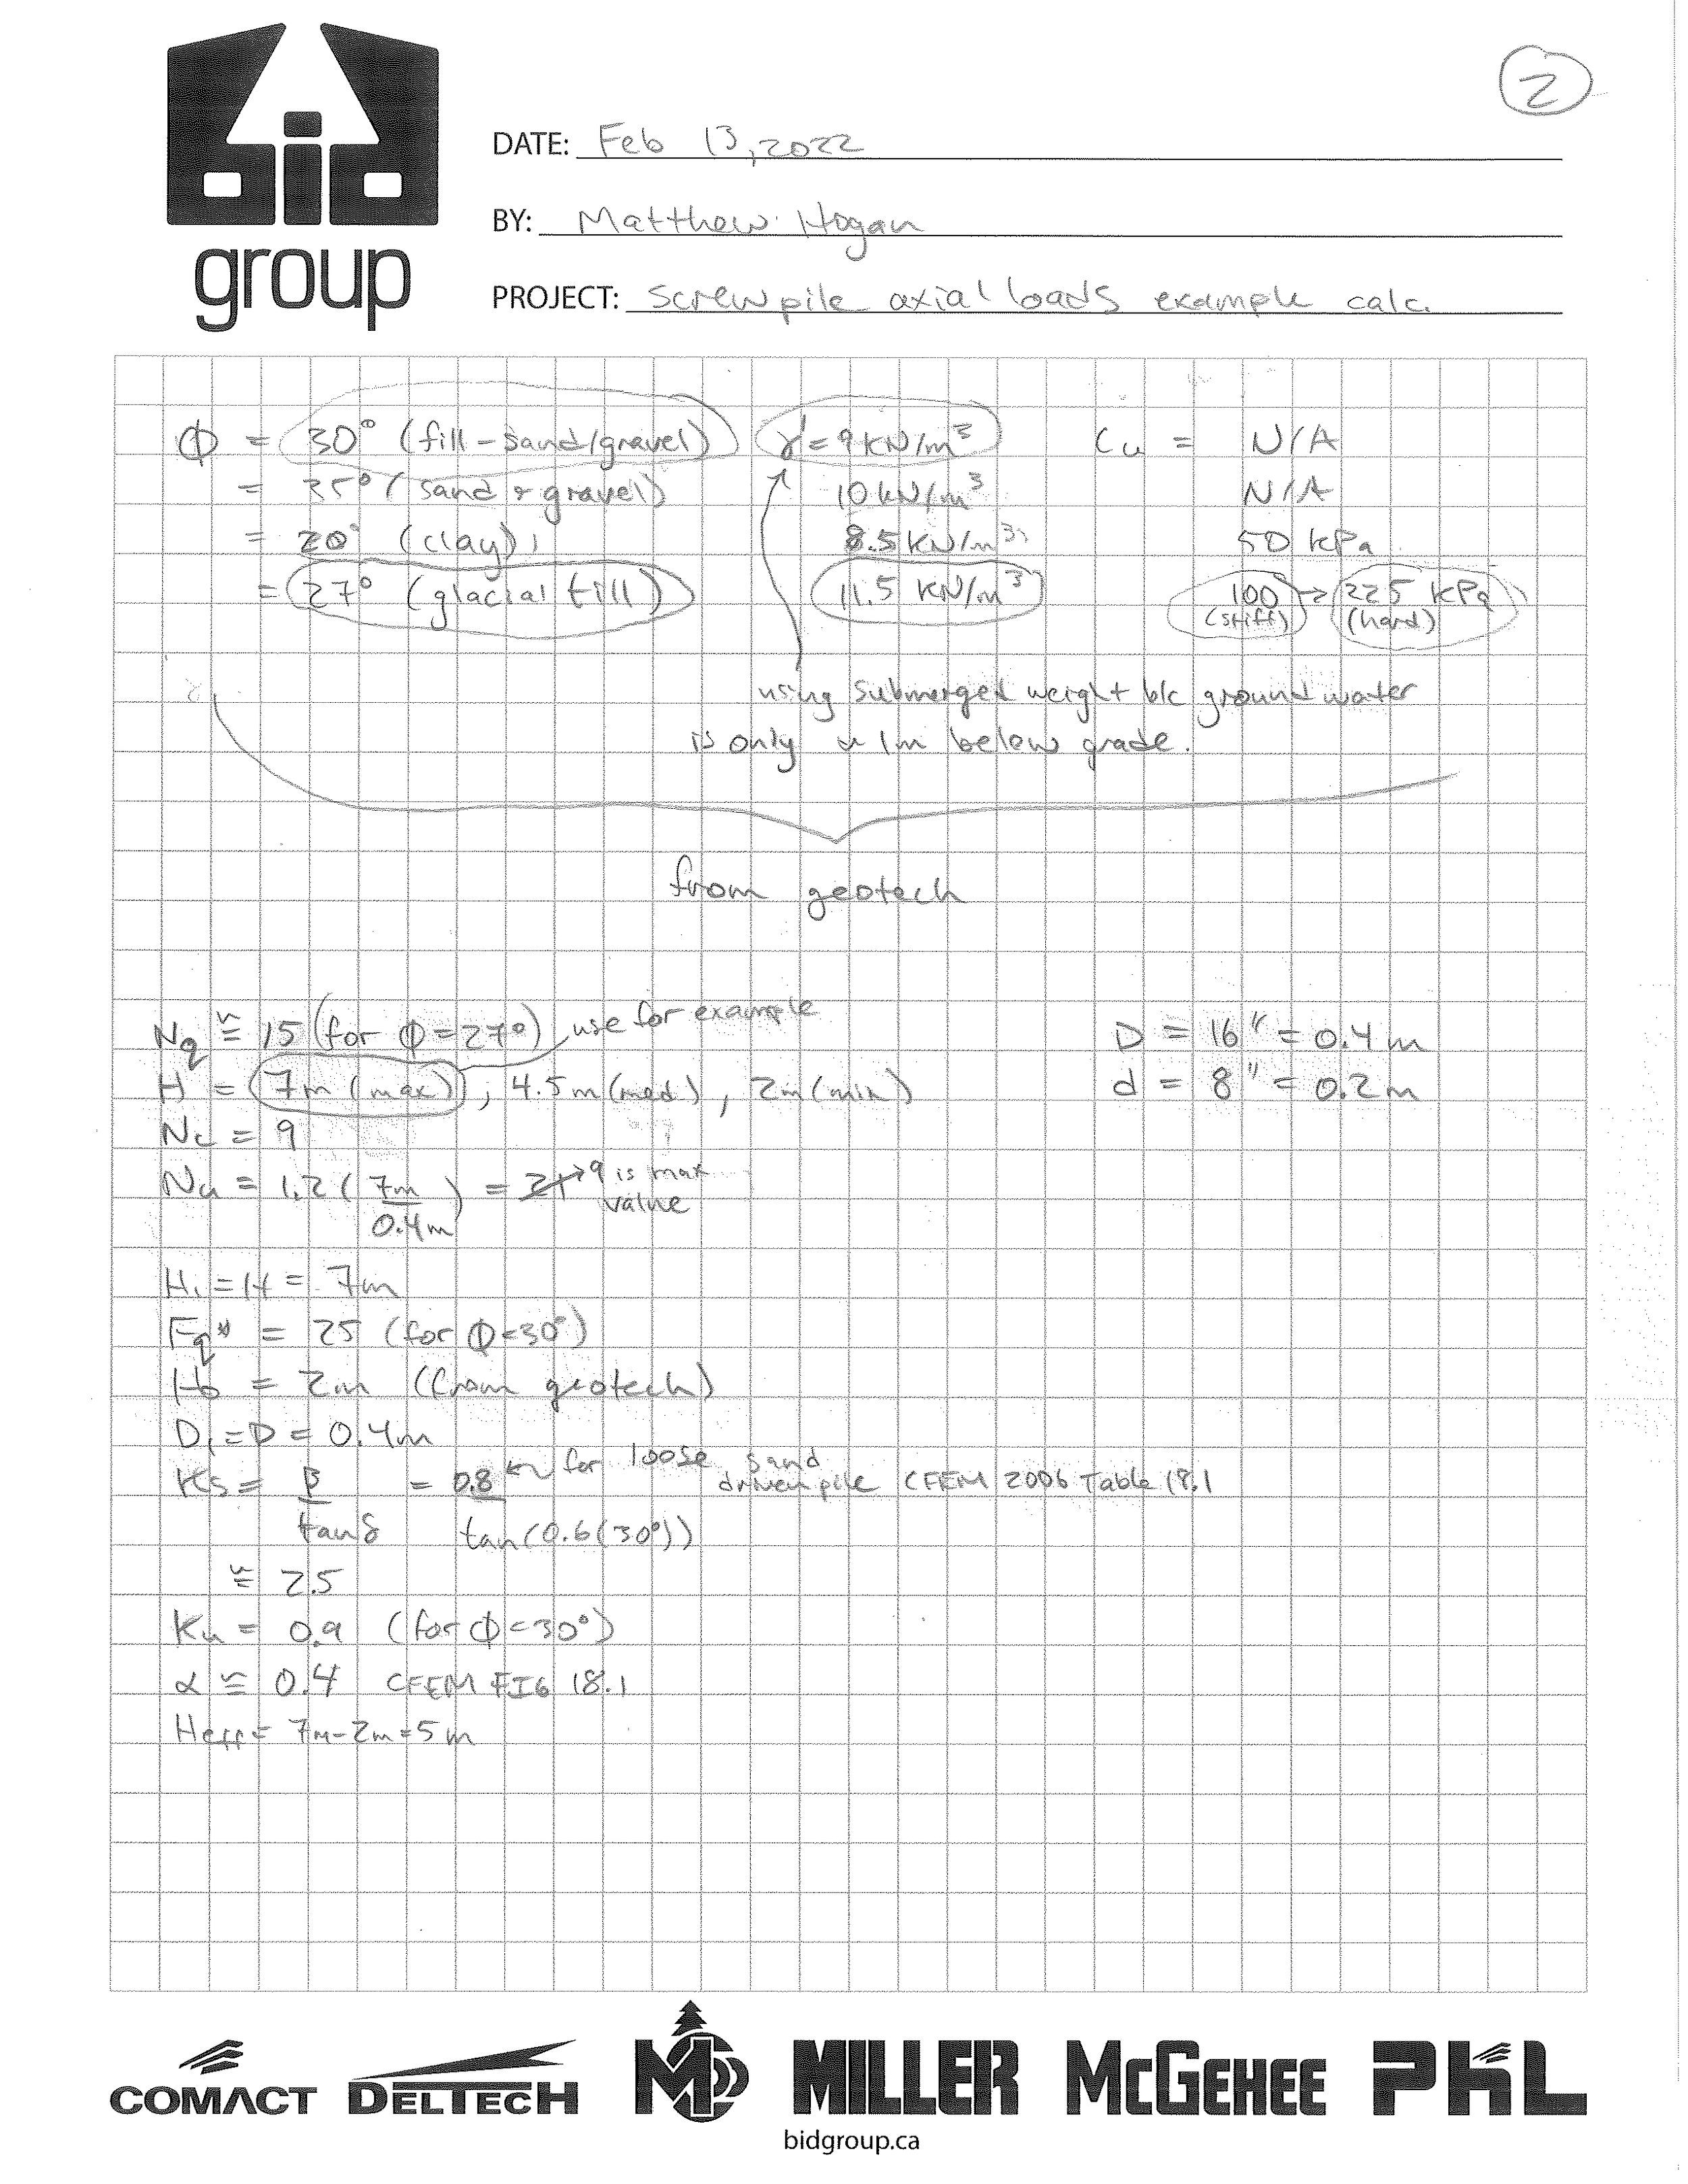 2
bid
group
DATE: Feb 13, 2022
BY: Matthew Hogan
PROJECT: Screwpile axial loads example calc.
Φ = 30° (fill - sand/gravel) γ' = 9 kN/m³ Cu = N/A
= 35° (sand & gravel) 10 kN/m³ N/A
= 20° (clay) 8.5 kN/m³ 50 kPa
= 27° (glacial till) 11.5 kN/m³ 100 (stiff) → 225 kPa (hard)
using submerged weight b/c ground water
is only ~ 1m below grade.
from geotech
Nq ≅ 15 (for Φ = 27°) use for example D = 16" = 0.4 m
H = 7m (max), 4.5m (med), 2m (min) d = 8" = 0.2 m
Nc = 9
Nu = 1.2 (7m/0.4m) = 21 → 9 is max
value
H₁ = H = 7m
Fq* = 25 (for Φ = 30°)
Hb = 2m (from geotech)
D₁ = D = 0.4m
Ks = β/tanδ = 0.8/tan(0.6(30°)) ← for loose sand
driven pile CFEM 2006 Table 18.1
≅ 2.5
Ku = 0.9 (for Φ = 30°)
α ≅ 0.4 CFEM FIG 18.1
Heff = 7m - 2m = 5m
COMACT DELTECH MILLER McGEHEE PHL
bidgroup.ca